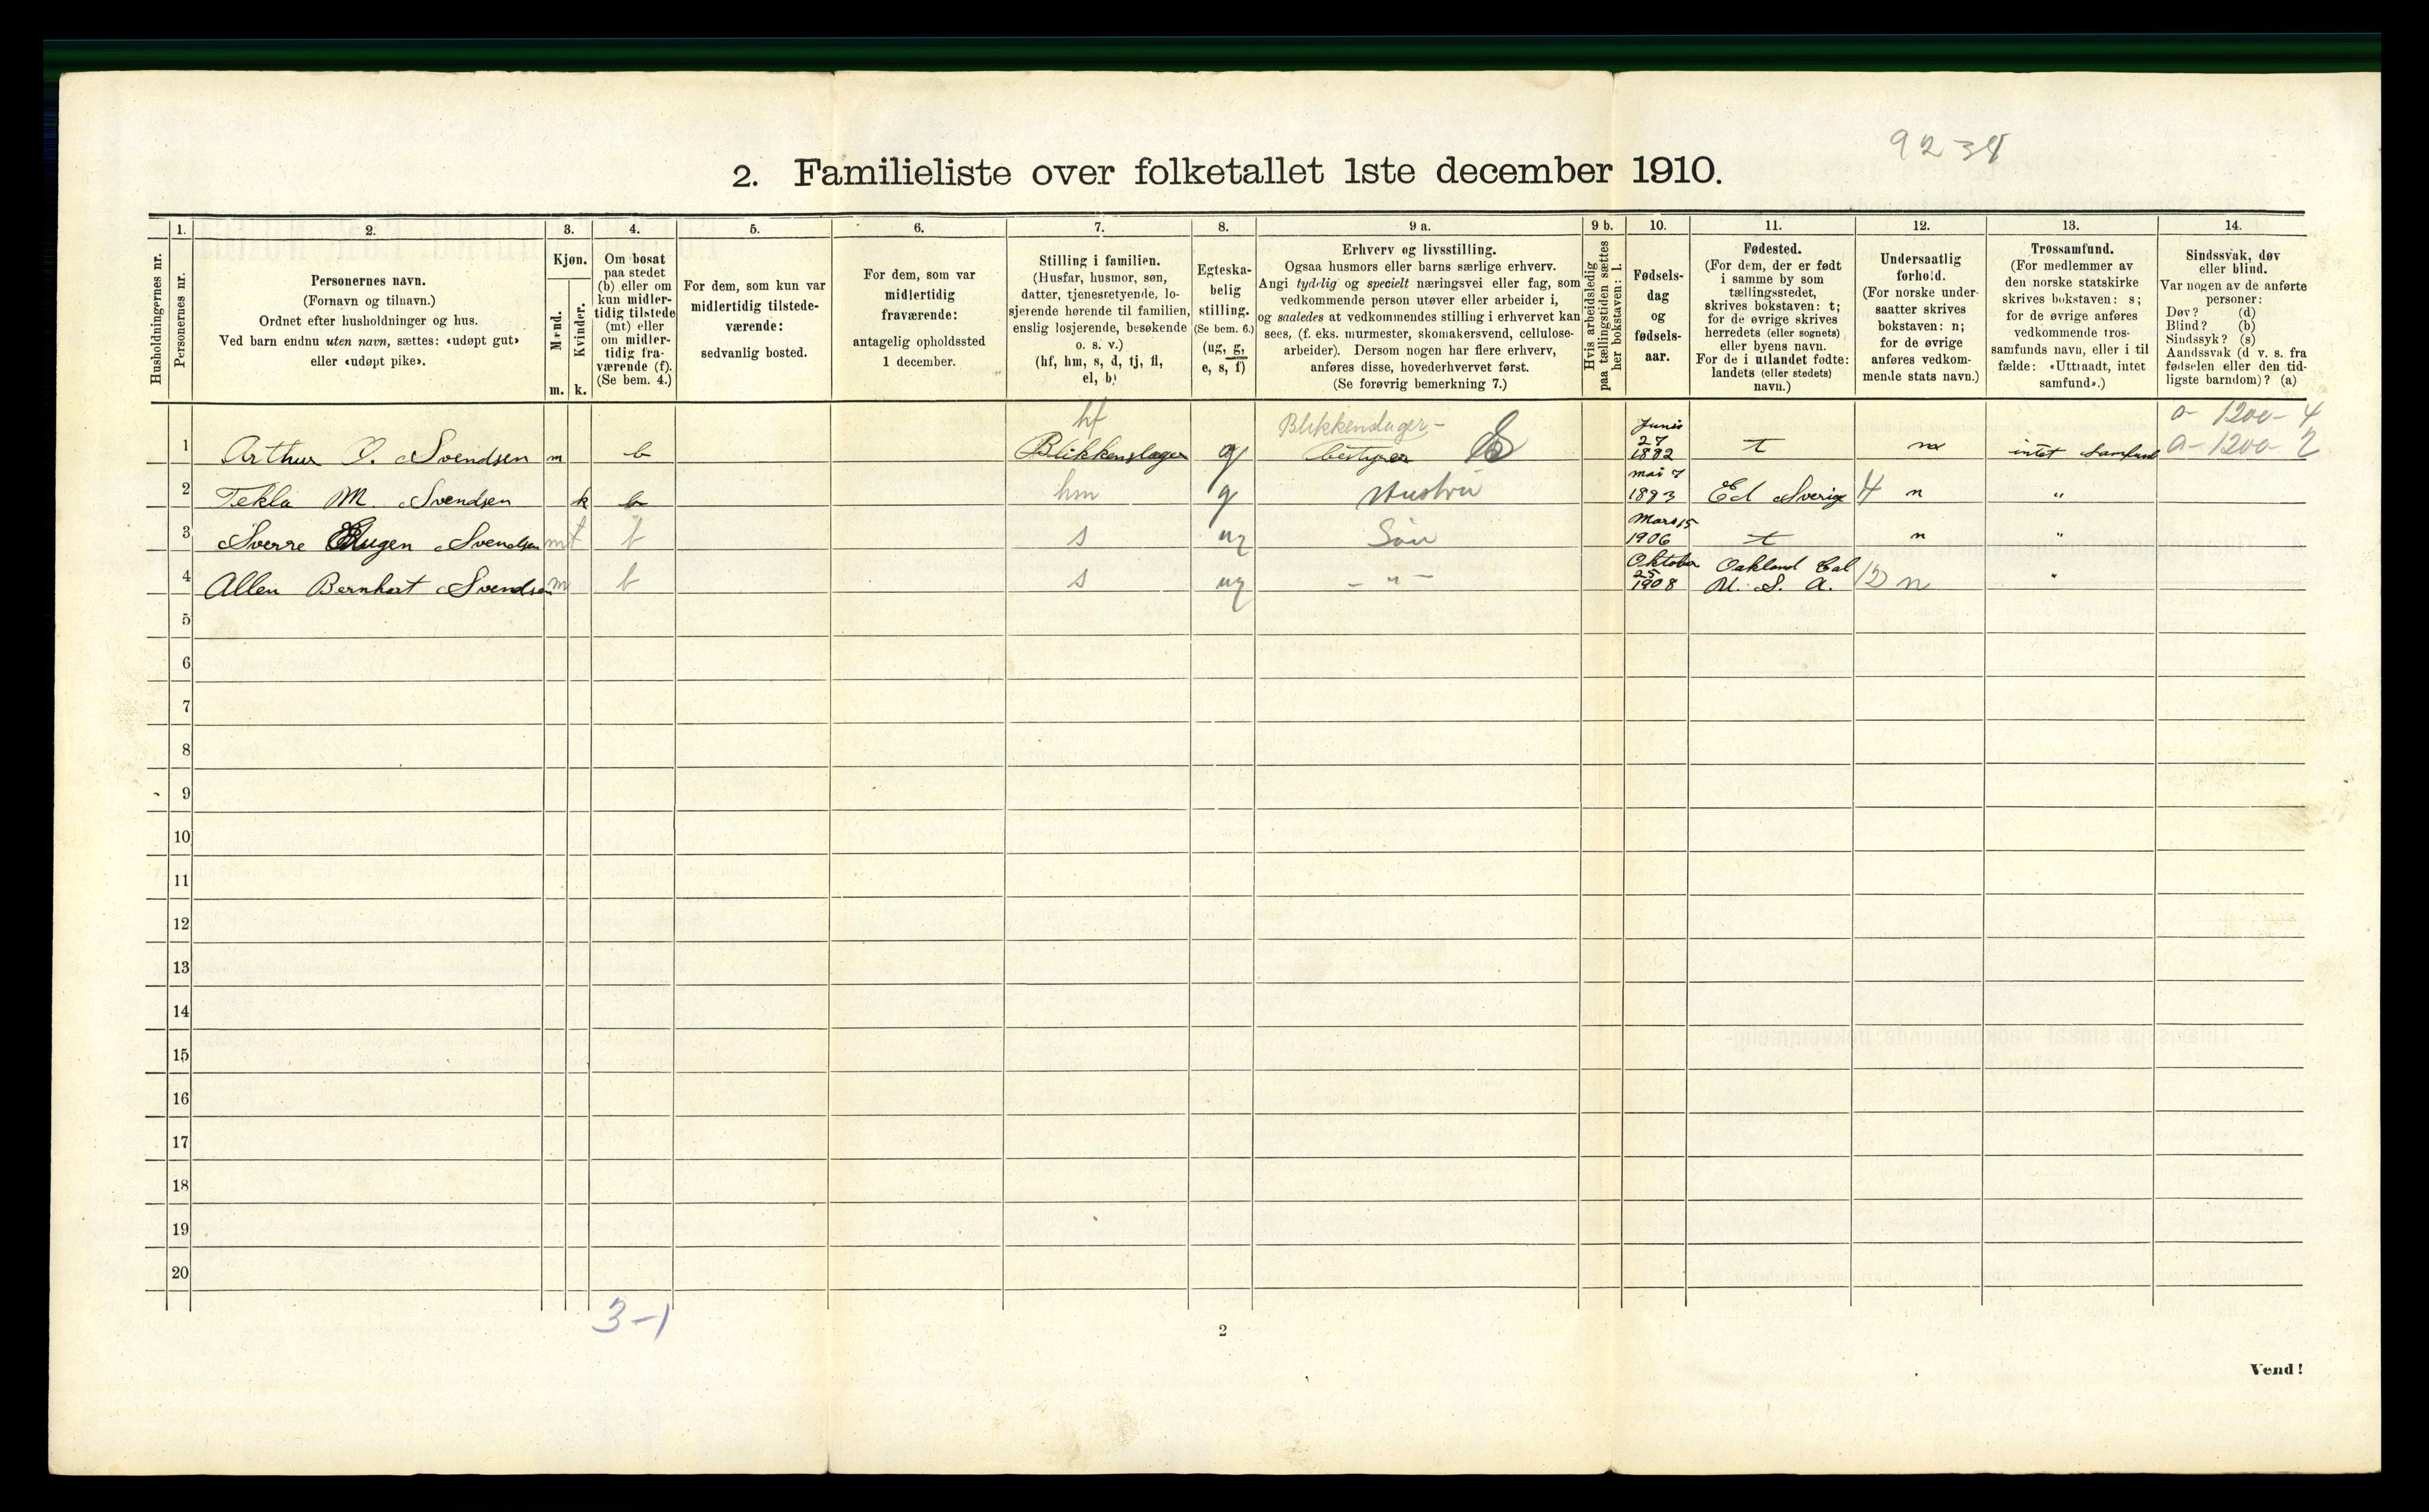 92 38
2. Familieliste over folketallet 1ste december 1910.
1. 2. 3. 4. 5. 6. 7. 8. 9 a. 9 b. 10. 11. 12. 13. 14.
Husholdningernes nr.
Personernes nr.
Personernes navn.
(Fornavn og tilnavn.)
Ordnet efter husholdninger og hus.
Ved barn endnu uten navn, sættes: «udøpt gut»
eller «udøpt pike».
Kjøn.
Mænd.
Kvinder.
m. k.
Om bosat
paa stedet
(b) eller om
kun midler-
tidig tilstede
(mt) eller
om midler-
tidig fra-
værende (f).
(Se bem. 4.)
For dem, som kun var
midlertidig tilstede-
værende:
sedvanlig bosted.
For dem, som var
midlertidig
fraværende:
antagelig opholdssted
1 december.
Stilling i familien.
(Husfar, husmor, søn,
datter, tjenestetyende, lo-
sjerende hørende til familien,
enslig losjerende, besøkende
o. s. v.)
(hf, hm, s, d, tj, fl,
el, b)
Egteska-
belig
stilling.
(Se bem. 6.)
(ug, g,
e, s, f)
Erhverv og livsstilling.
Ogsaa husmors eller barns særlige erhverv.
Angi tydelig og specielt næringsvei eller fag, som
vedkommende person utøver eller arbeider i,
og saaledes at vedkommendes stilling i erhvervet kan
sees, (f. eks. murmester, skomakersvend, cellulose-
arbeider). Dersom nogen har flere erhverv,
anføres disse, hovederhvervet først.
(Se forøvrig bemerkning 7.)
Hvis arbeidsledig
paa tællingstiden sættes
her bokstaven: l.
Fødsels-
dag
og
fødsels-
aar.
Fødested.
(For dem, der er født
i samme by som
tællingsstedet,
skrives bokstaven: t;
for de øvrige skrives
herredets (eller sognets)
eller byens navn.
For de i utlandet fødte:
landets (eller stedets)
navn.)
Undersaatlig
forhold.
(For norske under-
saatter skrives
bokstaven: n;
for de øvrige
anføres vedkom-
mende stats navn.)
Trossamfund.
(For medlemmer av
den norske statskirke
skrives bokstaven: s;
for de øvrige anføres
vedkommende tros-
samfunds navn, eller i til
fælde: «Uttraadt, intet
samfund».)
Sindssvak, døv
eller blind.
Var nogen av de anførte
personer:
Døv? (d)
Blind? (b)
Sindssyk? (s)
Aandssvak (d v. s. fra
fødselen eller den tid-
ligste barndom)? (a)
hf Blikkenslager- Junis a- 1200- 4
1 Arthur O. Svendsen m b Blikkenslager g bestyrer E 27 1882 t n intet Samfund a- 1200- 2
2 Tekla M. Svendsen k b hm g Hustru mai 7 1893 Ed Sverige 4 n "
3 Sverre Eugen Svendsen m t b s ug Søn Mars 15 1906 t n "
4 Allen Bernhart Svendsen m b s ug - " - Oktober 25 1908 Oakland Cal U. S. A. 12 n "
5
6
7
8
9
10
11
12
13
14
15
16
17
18
19
20
3-1
2
Vend!